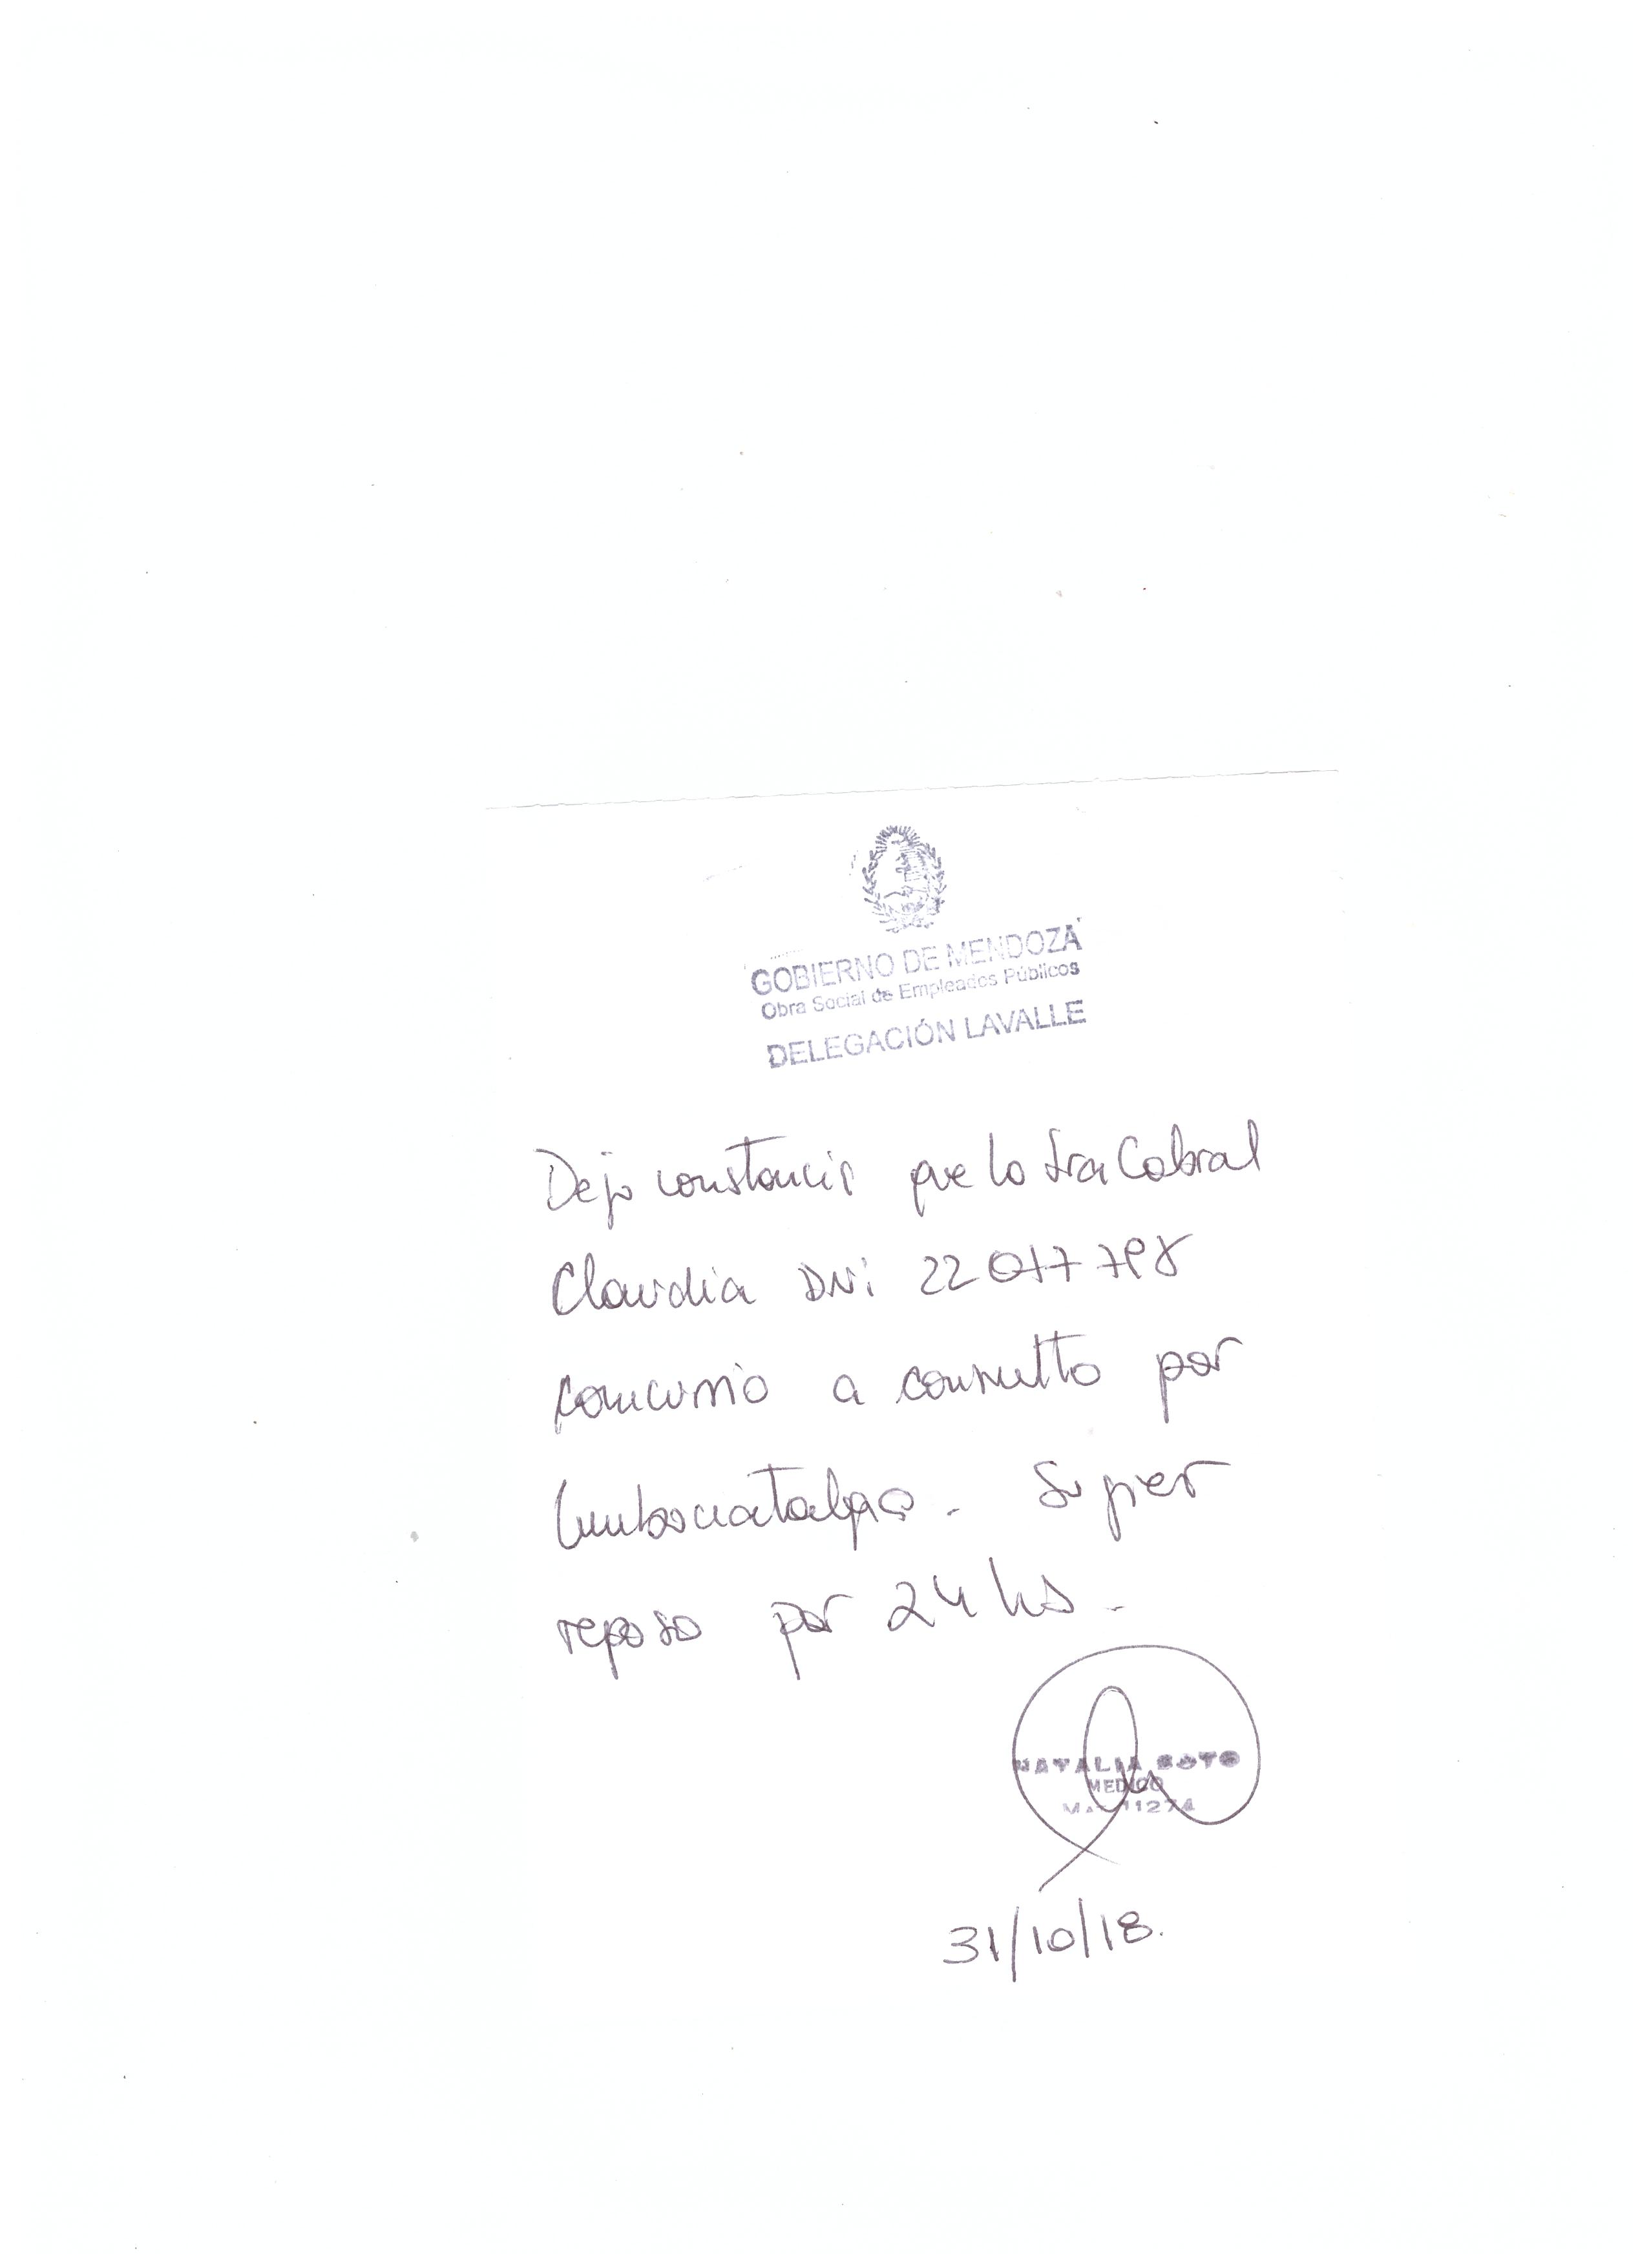 GOBIERNO DE MENDOZA
Obra Social de Empleados Públicos
DELEGACIÓN LAVALLE
Dejo constancia que la Sra Cabral
Claudia DNI 22 077 798
concurrió a consulta por
lumbociatalgia. Sugier
reposo por 24 hs.
NATALIA SOTO
MEDICO
Mat 11274
31/10/18.